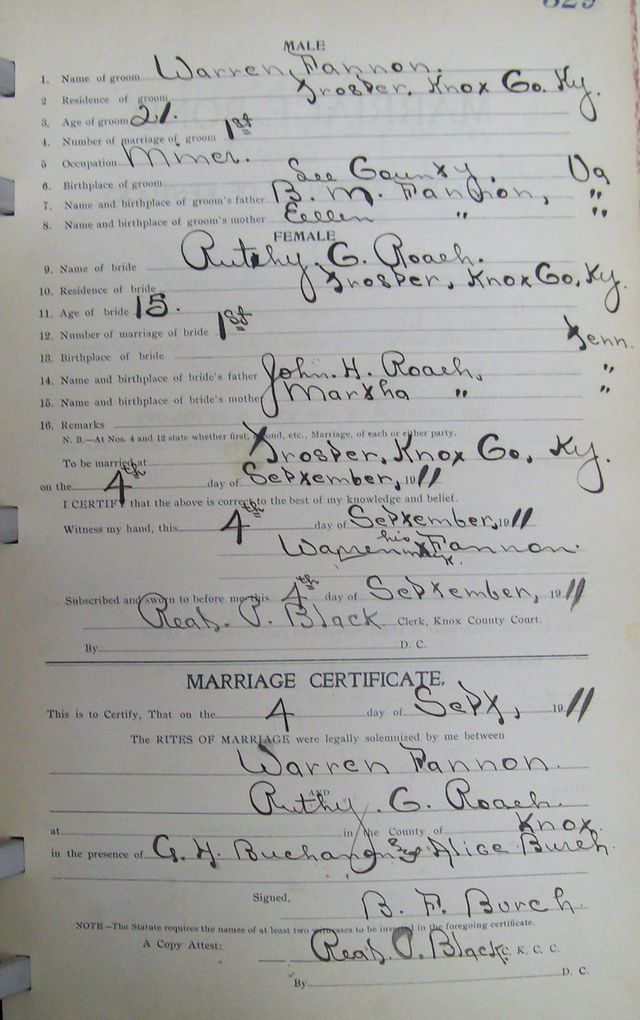 329
MALE
1. Name of groom Warren Fannon.
2 Residence of groom Trosper, Knox Co. Ky.
3. Age of groom 21.
4. Number of marriage of groom 1st
5 Occupation Miner.
6. Birthplace of groom Lee County, Va
7. Name and birthplace of groom's father B. M. Fannon, "
8. Name and birthplace of groom's mother Eellen " "
FEMALE
9. Name of bride Ruthy. C. Roach.
10. Residence of bride Trosper, Knox Co, Ky.
11. Age of bride 15.
12. Number of marriage of bride 1st
13. Birthplace of bride Tenn.
14. Name and birthplace of bride's father John. H. Roach, "
15. Name and birthplace of bride's mother Martha " "
16. Remarks
N. B.—At Nos. 4 and 12 state whether first, second, etc., Marriage, of each or either party.
To be married at Trosper, Knox Co, Ky.
on the 4th day of September, 1911
I CERTIFY that the above is correct to the best of my knowledge and belief.
Witness my hand, this 4th day of September, 1911
his
Warren x Fannon.
mark.
Subscribed and sworn to before me this 4th day of September, 1911
Read. P. Black Clerk, Knox County Court.
By D. C.
MARRIAGE CERTIFICATE.
This is to Certify, That on the 4 day of Sept, 1911
The RITES OF MARRIAGE were legally solemnized by me between
Warren Fannon.
AND
Ruthy. C. Roach.
at in the County of Knox.
in the presence of G. H. Buchanan and Alice Burch
Signed, B. F. Burch
NOTE—The Statute requires the names of at least two witnesses to be inserted in the foregoing certificate.
A Copy Attest: Read. P. Black C. K. C. C.
By D. C.